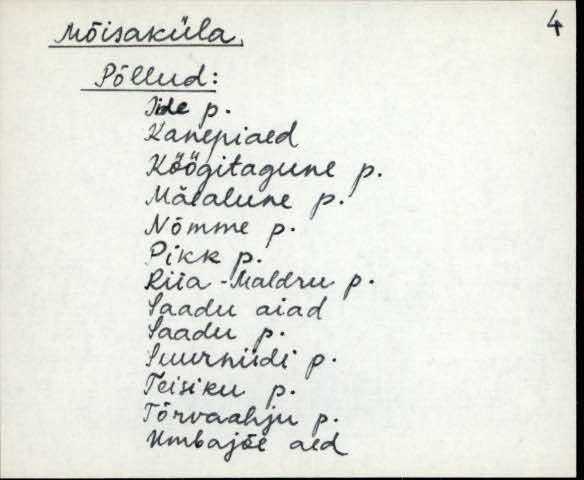 4
Mõisaküla,
Põllud:
Iide p.
Kanepiaed
Köögitagune p.
Mäealune p.
Nõmme p.
Pikk p.
Riia-Maldru p.
Saadu aiad
Saadu p.
Suurniidi p.
Teisiku p.
Tõrvaahju p.
Umbajõe aed